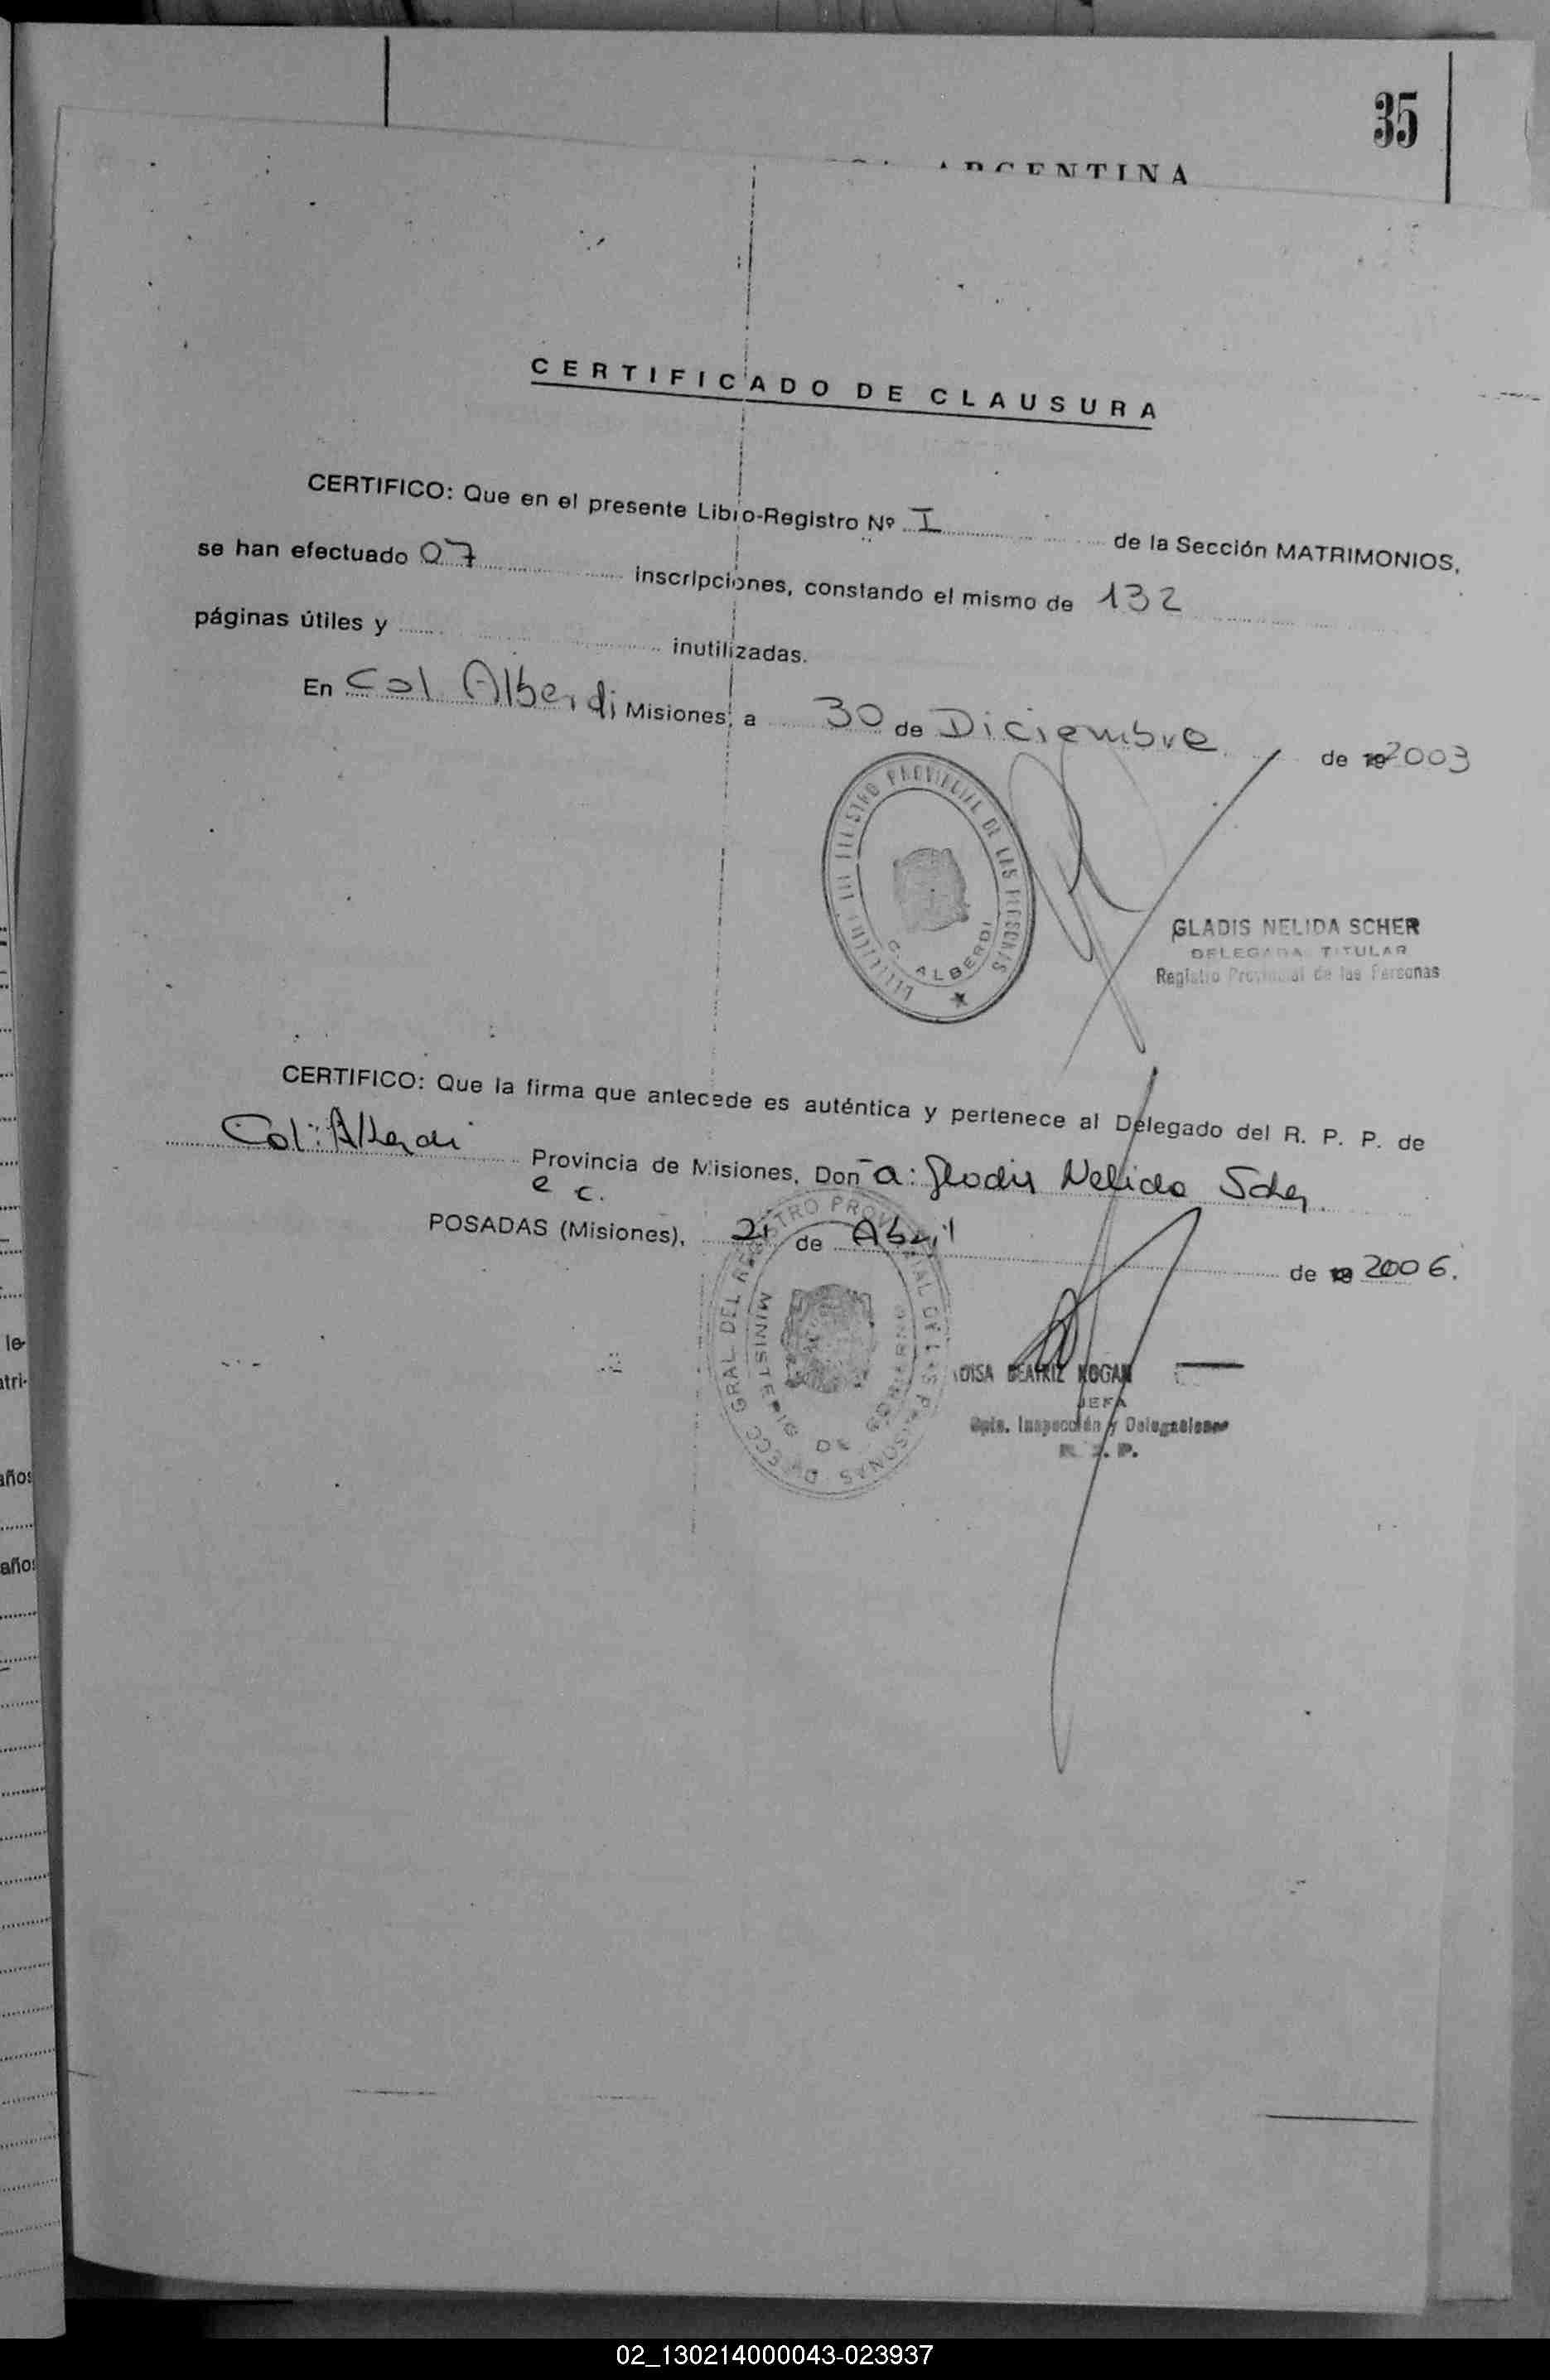 35
ARGENTINA
CERTIFICADO DE CLAUSURA
CERTIFICO: Que en el presente Libro-Registro Nº I de la Sección MATRIMONIOS,
se han efectuado 07 inscripciones, constando el mismo de 132
páginas útiles y inutilizadas.
En Col Alberdi Misiones, a 30 de Diciembre de 19 2003
REGISTRO PROVINCIAL DE LAS PERSONAS
C. ALBERDI
GLADIS NELIDA SCHER
DELEGADA TITULAR
Registro Provincial de las Personas
CERTIFICO: Que la firma que antecede es auténtica y pertenece al Delegado del R. P. P. de
Col: Alberdi Provincia de Misiones, Don a: Gladis Nelida Scher
e c.
POSADAS (Misiones), 21 de Abril de 19 2006.
DIRECC GRAL DEL REGISTRO PROVINCIAL DE LAS PERSONAS
MINISTERIO DE GOBIERNO
BEATRIZ KOGAN
JEFA
Dpto. Inspección y Delegaciones
R. P. P.
le-
atri-
años
años
02_130214000043-023937